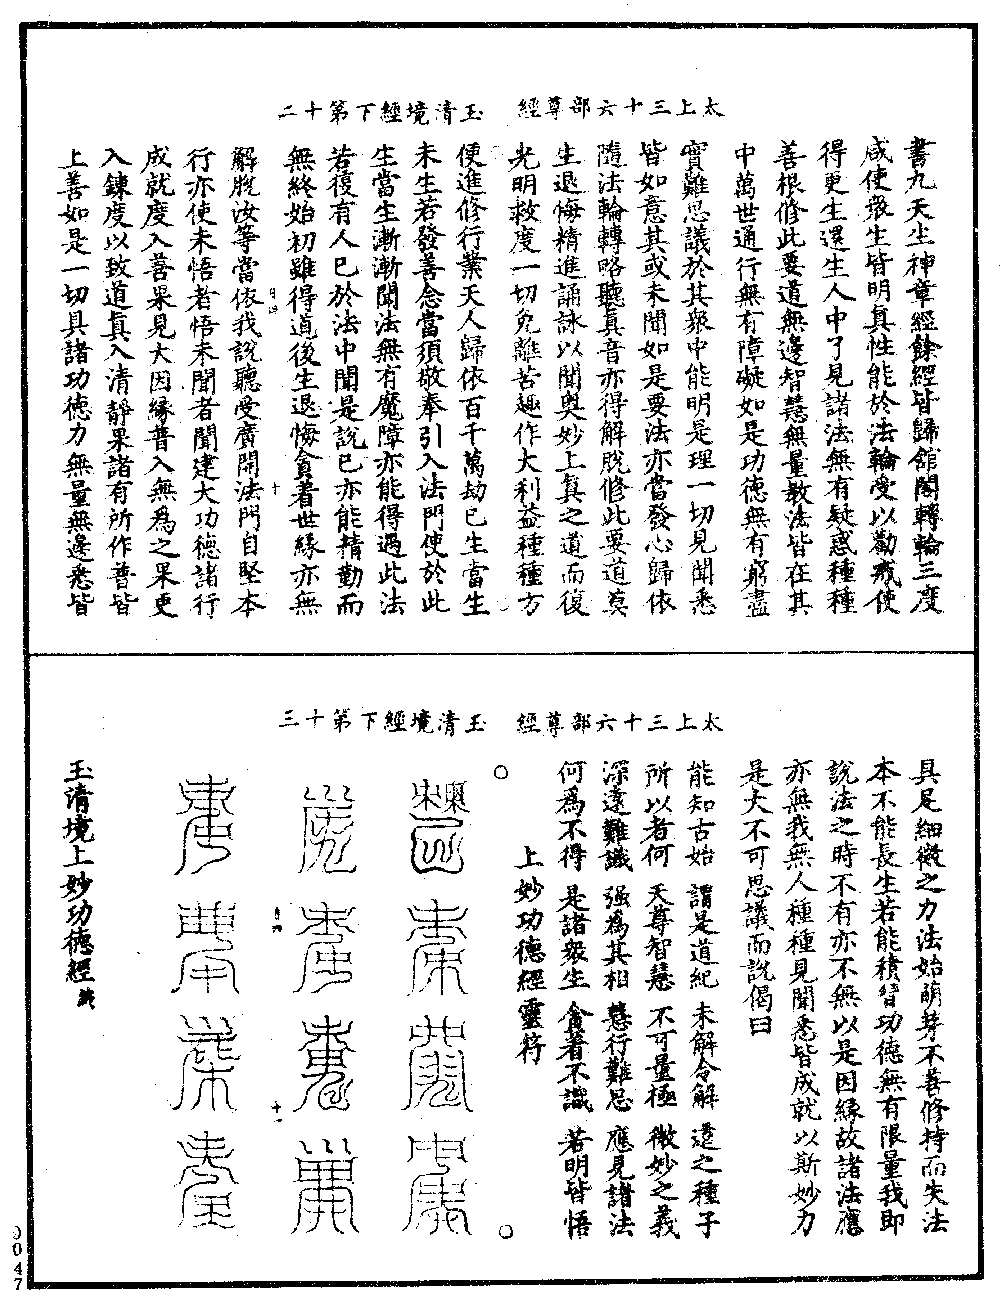 太上三十六部尊經　玉清境經下第十二
書九天尘神章經餘經皆歸舘閣轉輪三度
咸使衆生皆明真性能於法輪受以勸戒使
得更生還生人中了見諸法無有疑惑種種
善根修此要道無邊智慧無量教法皆在其
中萬世通行無有障礙如是功德無有窮盡
實難思議於其衆中能明是理一切見聞悉
皆如意其或未聞如是要法亦當發心歸依
隨法輪轉略聽真音亦得解脫修此要道莫
生退悔精進誦詠以聞奧妙上真之道而復
光明救度一切免離苦趣作大利益種種方
便進修行業天人歸依百千萬劫已生當生
未生若發善念當須敬奉引入法門使於此
生當生漸漸聞法無有魔障亦能得遇此法
若復有人已於法中聞是說已亦能精勤而
無終始初雖得道後生退悔貪著世緣亦無
解脫汝等當依我說聽受廣開法門自堅本
行亦使未悟者悟未聞者聞建大功德諸行
成就度入善果見大因緣普入無爲之果更
入鍊度以致道真入清靜果諸有所作普皆
上善如是一切具諸功德力無量無邊悉皆
太上三十六部尊經　玉清境經下第十三
具足細微之力法始萌芽不善修持而失法
本不能長生若能積習功德無有限量我即
說法之時不有亦不無以是因緣故諸法應
亦無我無人種種見聞悉皆成就以斯妙力
是大不可思議而說偈曰
能知古始　謂是道紀　未解令解　還之種子
所以者何　天尊智慧　不可量極　微妙之義
深遠難識　强爲其相　慧行難思　應見諸法
何爲不得　是諸衆生　貪著不識　若明皆悟
上妙功德經靈符
玉清境上妙功德經
0047